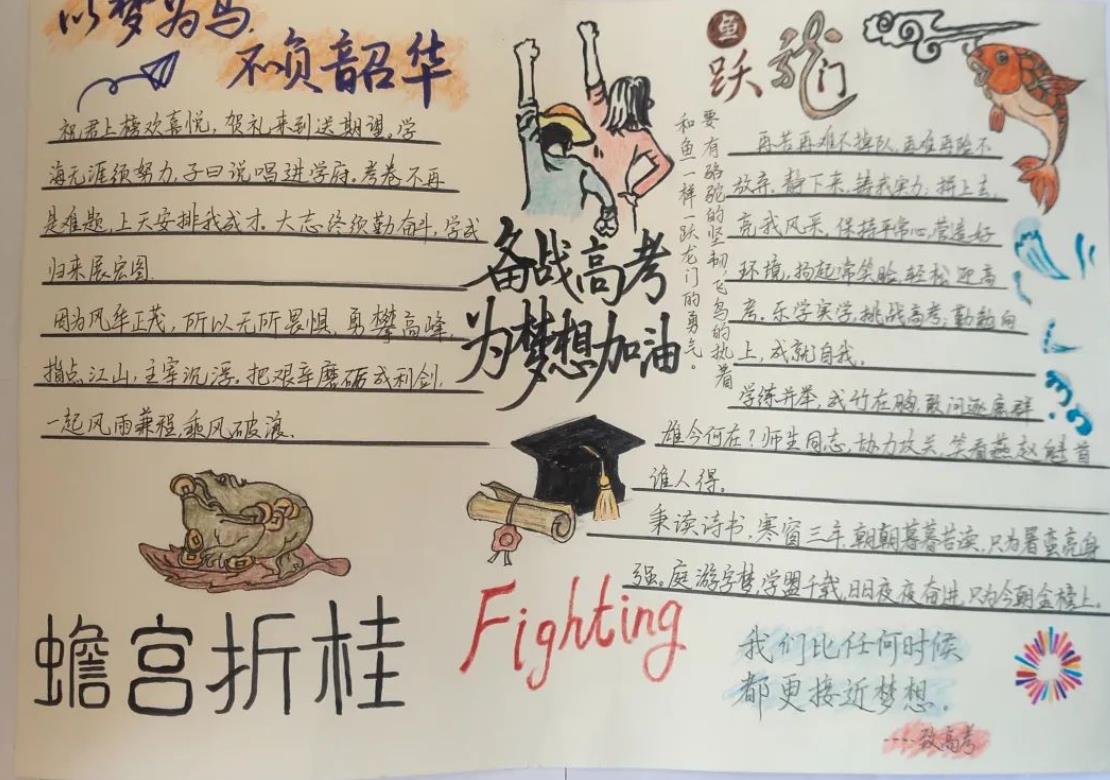 以梦为马
不负韶华
祝君上榜欢喜悦，贺礼来到送期望。学
海无涯须努力，子曰说唱进学府。考卷不再
是难题，上天安排我成才。大志终须勤奋斗，学成
归来展宏图。
因为风华正茂，所以无所畏惧，勇攀高峰，
指点江山，主宰沉浮，把艰辛磨砺成利剑，
一起风雨兼程，乘风破浪。
蟾宫折桂
备战高考
为梦想加油
Fighting
鱼
跃龙门
要有骆驼的坚韧，飞鸟的执着
和鱼一样一跃龙门的勇气。
再苦再难不掉队，再难再险不
放弃。静下来，铸我实力，拼上去，
亮我风采，保持平常心，营造好
环境，扬起常笑脸，轻松迎高
考。乐学实学，挑战高考；勤勉向
上，成就自我。
学练并举，成竹在胸，敢问逐鹿群
雄今何在？师生同志，协力攻关，笑看燕赵魁首
谁人得。
秉读诗书，寒窗三年，朝朝暮暮苦读，只为
强。庭游字梦，学盟千载，日日夜夜奋进，只为今朝金榜上。
我们比任何时候
都更接近梦想.
----致高考